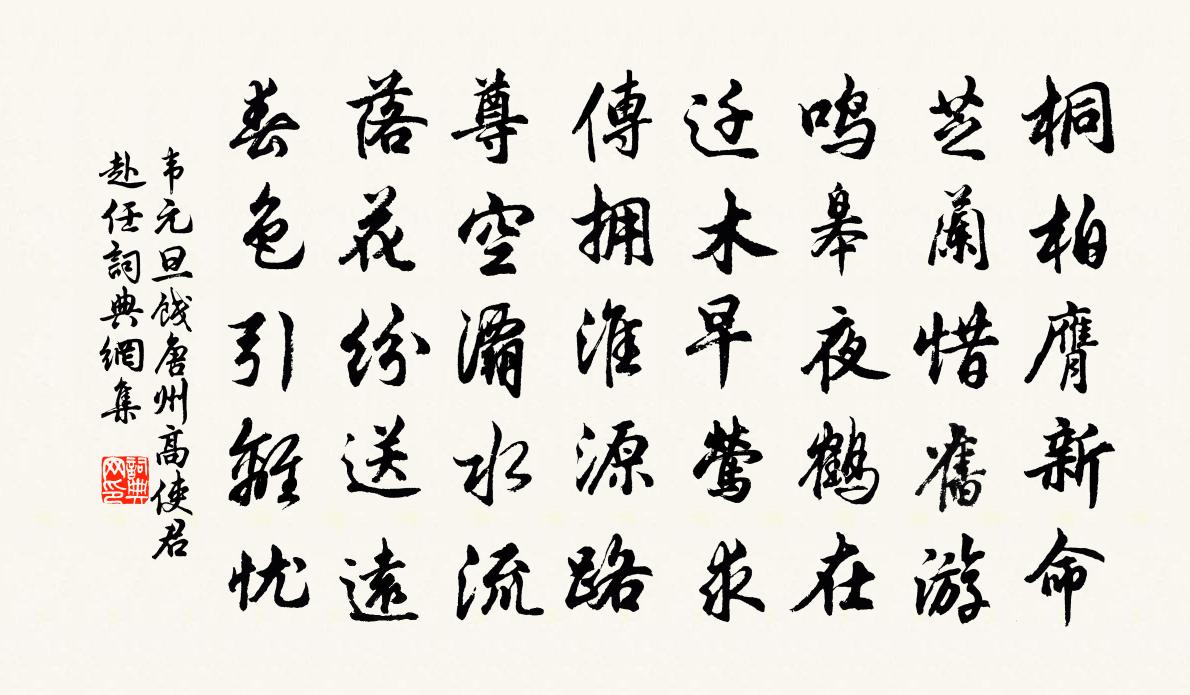 桐柏膺新命
芝蘭惜舊游
鸣皋夜鶴在
迁木早鶯求
傳拥淮源路
尊空灞水流
落花纷送遠
春色引離忧
韦元旦餞唐州高使君
赴任詞典網集
詞典
网印